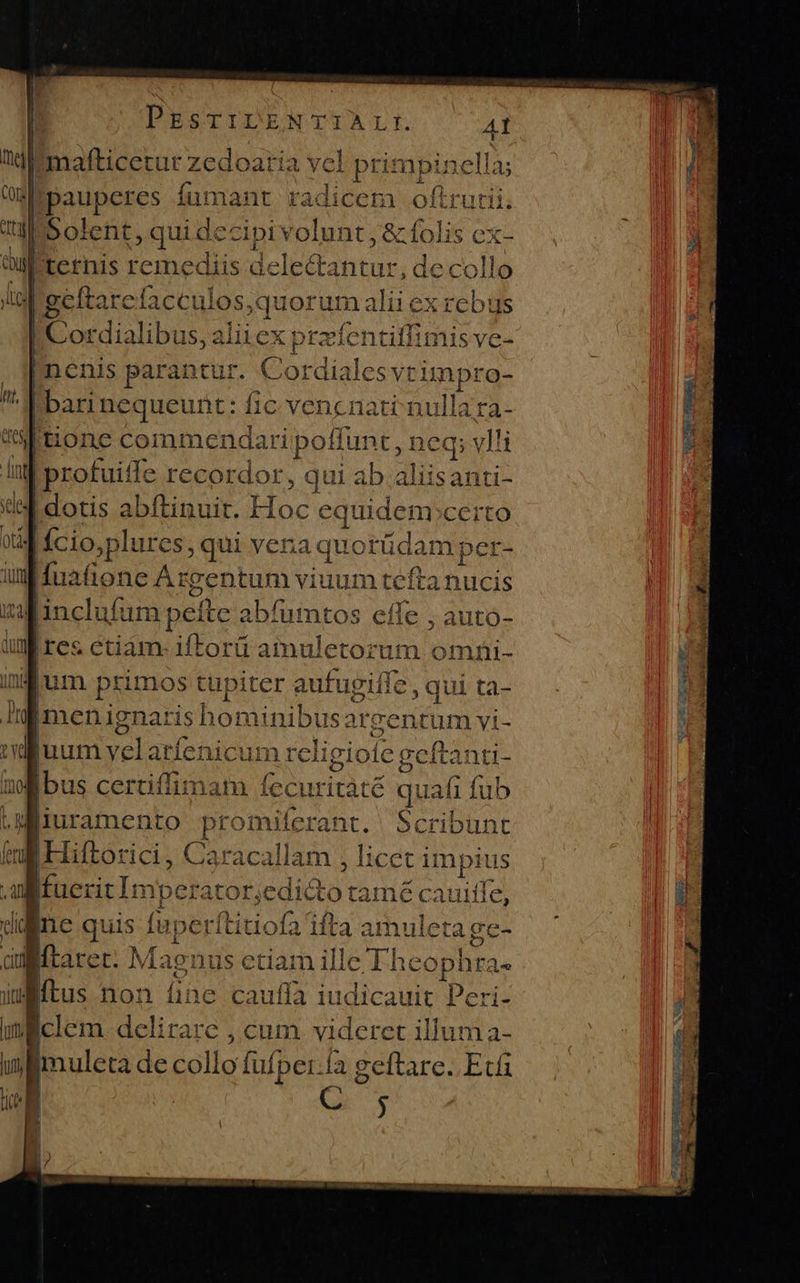 PESTILENTIALI. 41
mafticetur zedoaria vel primpinella;
pauperes fumant radicem oftrutii.
Solent, qui decipi volunt, & folis ex-
ternis remediis delectantur, de collo
geftare facculos, quorum alii ex rebus
Cordialibus, alii ex præfentiffimis ve-
nenis parantur. Cordiales vt impro-
bari nequeunt: fic venenati nulla ra-
tione commendari poffunt, neq; vlli
profuiffe recordor, qui ab aliis anti-
dotis abftinuit. Hoc equidem certo
fcio, plures, qui vena quorũdam per-
fuafione Argentum viuum tefta nucis
inclufum pefte abfumtos effe, auto-
res etiam iftorũ amuletorum omni-
um primos tupiter aufugiffe, qui ta-
men ignaris hominibus argentum vi-
uum vel arfenicum religiofe geftanti-
bus certiffimam fecuritatẽ quafi fub
iuramento promiferant. Scribunt
Hiftorici, Caracallam, licet impius
fuerit Imperator, edicto tamẽ cauiffe,
ne quis fuperftitiofa ifta amuleta ge-
ftaret. Magnus etiam ille Theophra-
ftus non fine cauffa iudicauit Peri-
clem delirare, cum videret illum a-
muleta de collo fufpenfa geftare. Etfi
C 5